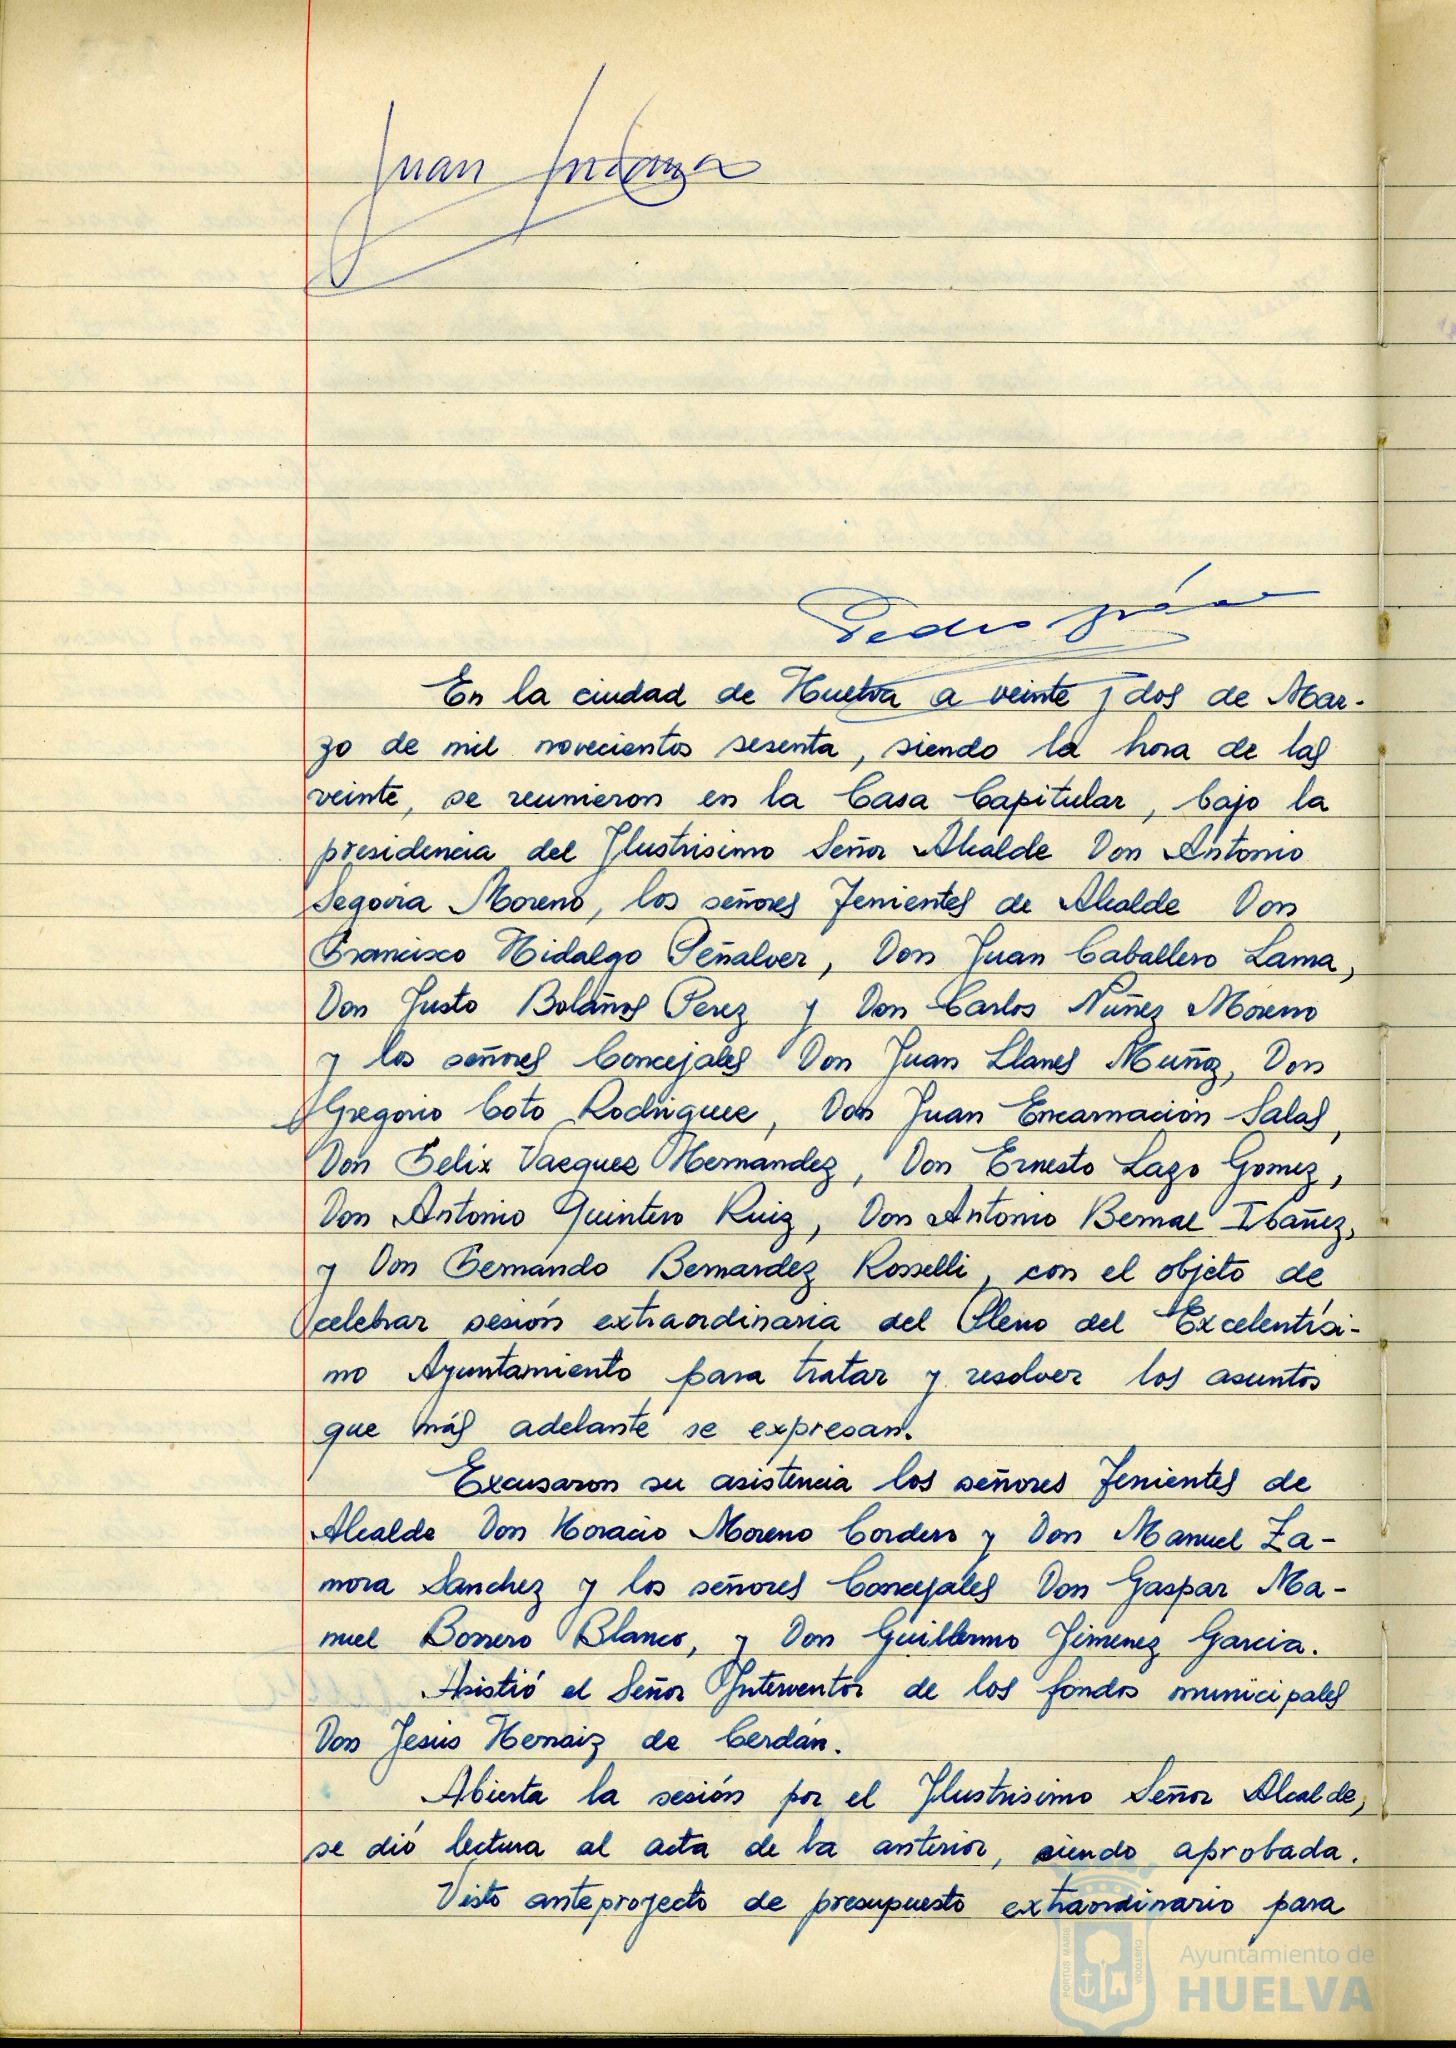 Juan
Pedro
En la ciudad de Huelva a veinte y dos de Mar-
zo de mil novecientos sesenta, siendo la hora de las
veinte, se reunieron en la Casa Capitular, bajo la
presidencia del Ilustrisimo Señor Alcalde Don Antonio
Segovia Moreno, los señores Tenientes de Alcalde Don
Francisco Hidalgo Peñalver, Don Juan Caballero Lama,
Don Justo Bolaños Perez y Don Carlos Núñez Moreno
y los señores Concejales Don Juan Llanes Muñoz, Don
Gregorio Coto Rodriguez, Don Juan Encarnación Salas,
Don Felix Vazquez Hernandez, Don Ernesto Lazo Gomez,
Don Antonio Quintero Ruiz, Don Antonio Bernal Ibañez,
y Don Fernando Bernardez Rosselli, con el objeto de
celebrar sesión extraordinaria del Pleno del Excelentísi-
mo Ayuntamiento para tratar y resolver los asuntos
que más adelante se expresan.
Excusaron su asistencia los señores Tenientes de
Alcalde Don Horacio Moreno Cordero y Don Manuel Za-
mora Sanchez y los señores Concejales Don Gaspar Ma-
nuel Borrero Blanco, y Don Guillermo Jimenez Garcia.
Asistió el Señor Interventor de los fondos municipales
Don Jesús Hernaiz de Cerdán.
Abierta la sesión por el Ilustrisimo Señor Alcalde,
se dió lectura al acta de la anterior, siendo aprobada.
Visto anteproyecto de presupuesto extraordinario para
PORTUS MARIS CUSTODIA
Ayuntamiento de
HUELVA